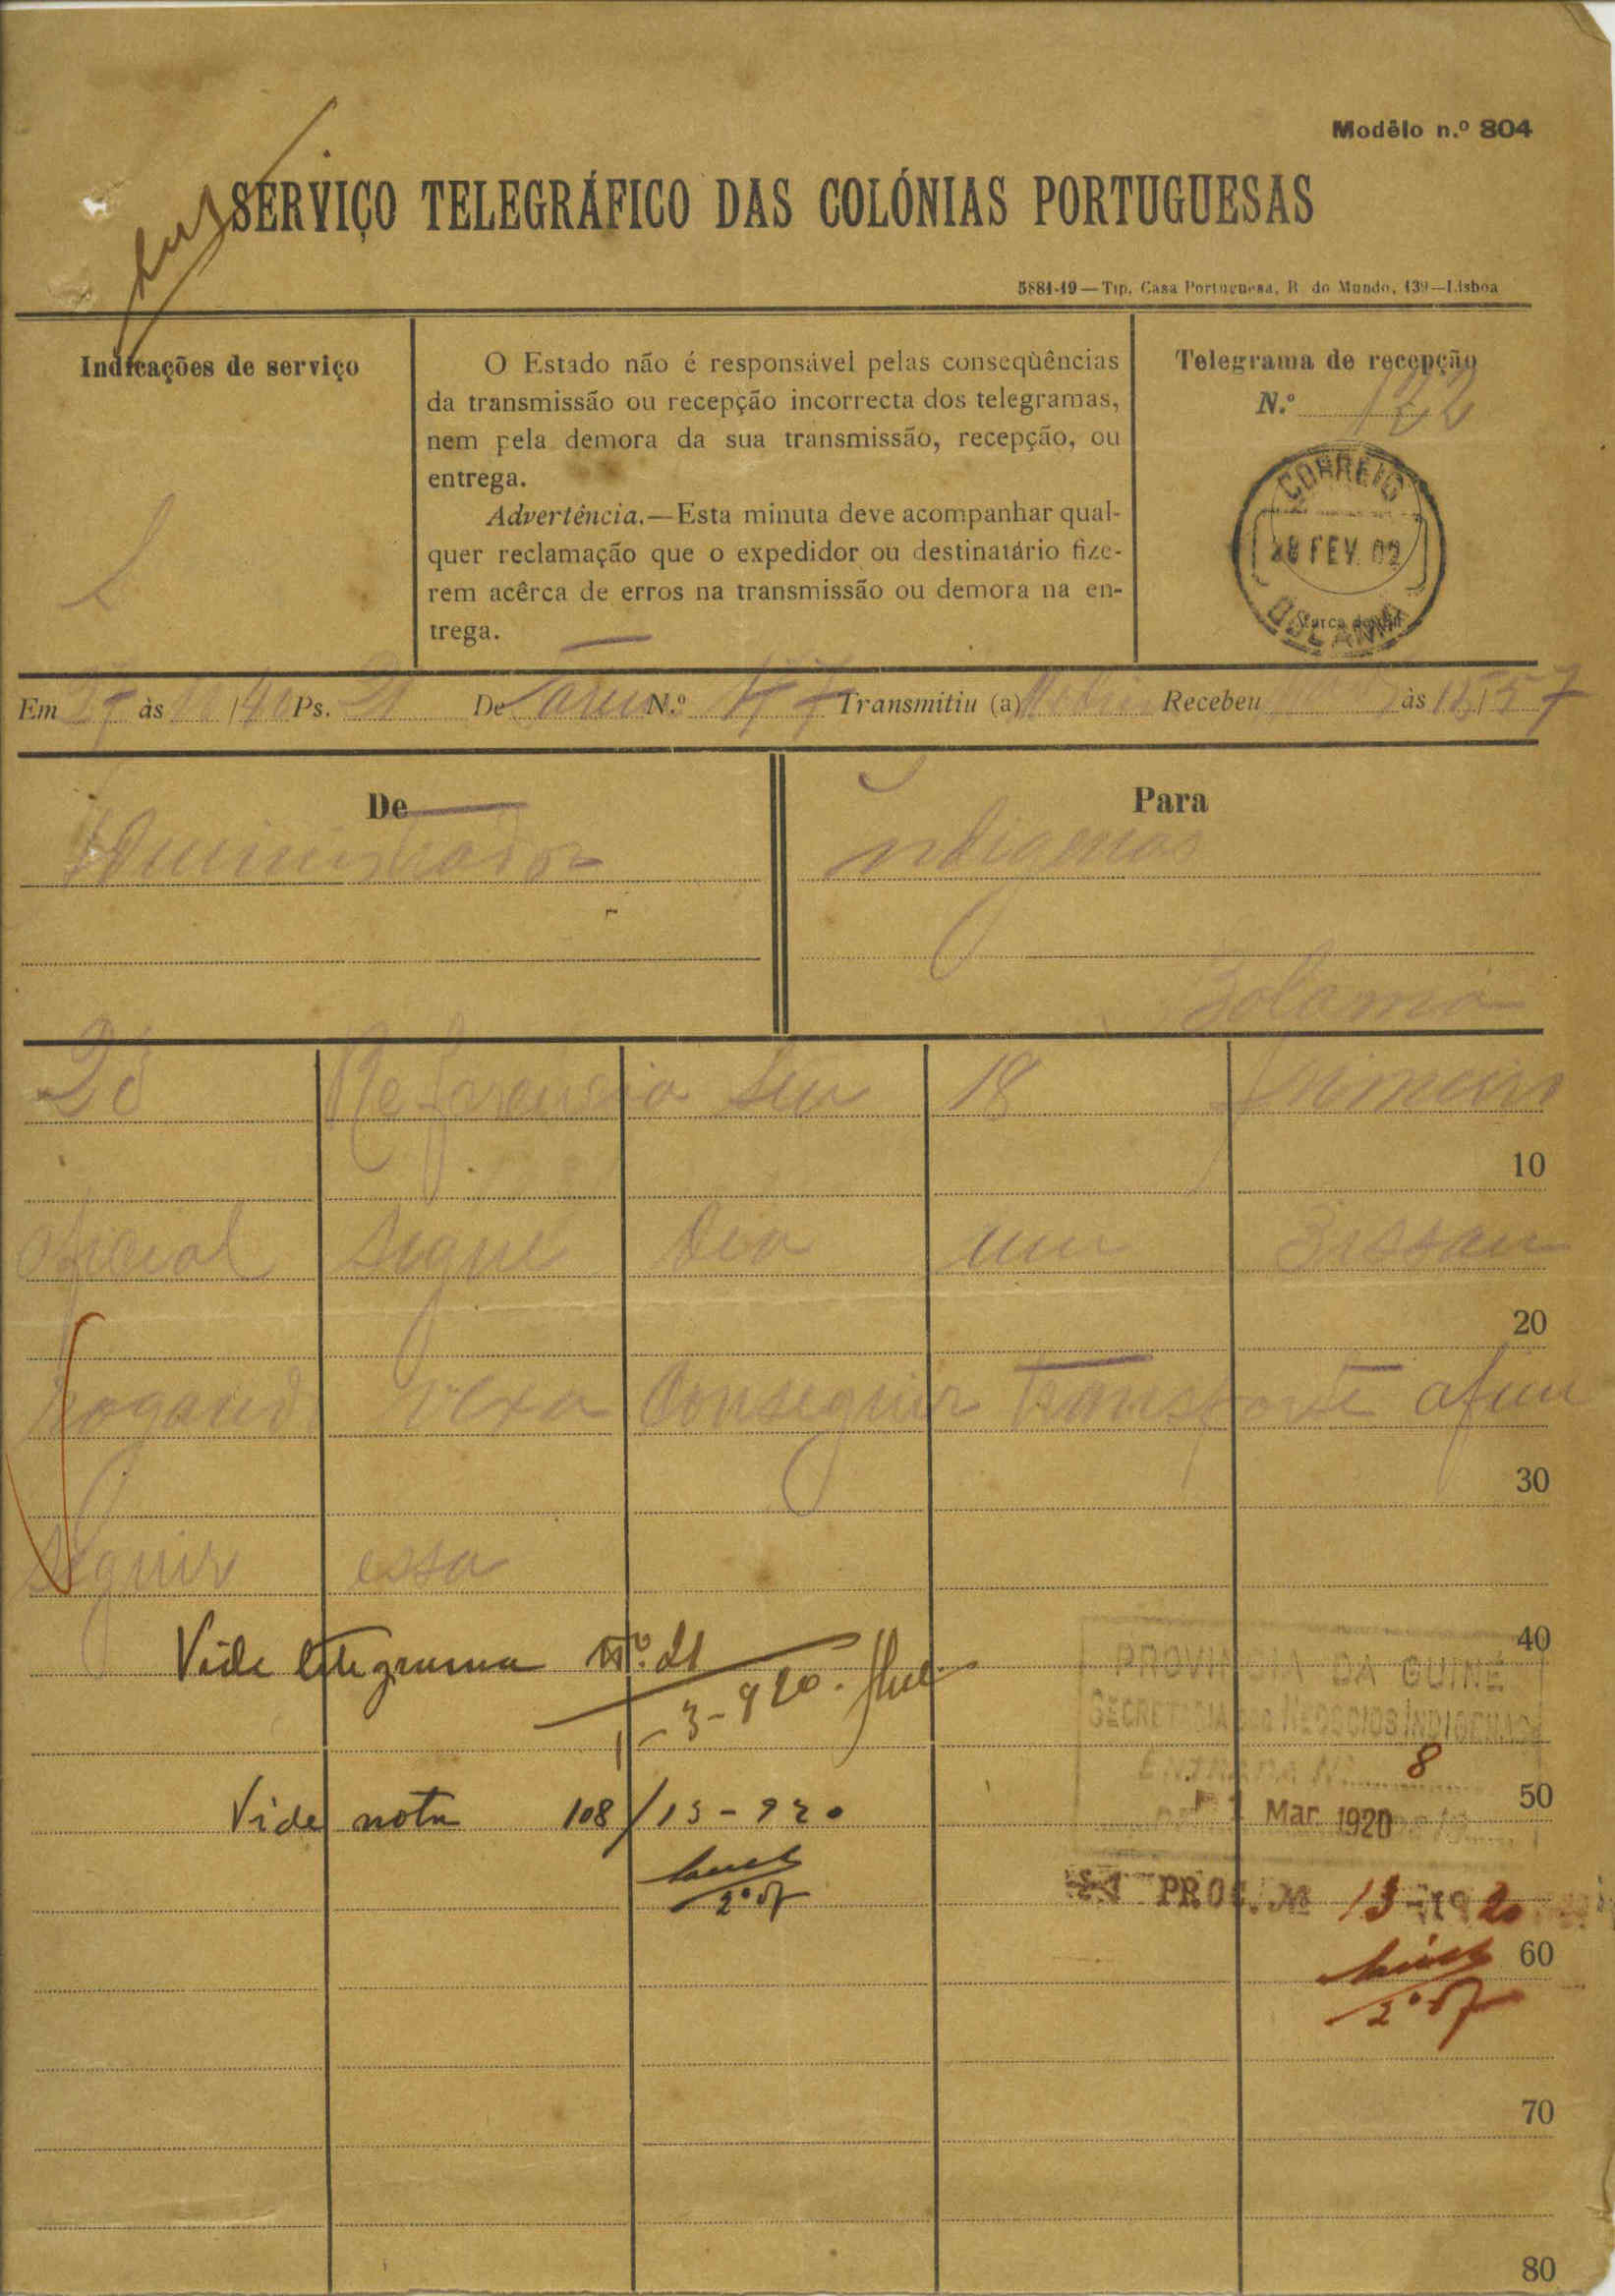 Modêlo n.º 804
SERVIÇO TELEGRÁFICO DAS COLÓNIAS PORTUGUESAS
5881-19—Tip. Casa Portuguesa, R. do Mundo, 139—Lisboa
Indicações de serviço
O Estado não é responsável pelas conseqùências
da transmissão ou recepção incorrecta dos telegramas,
nem pela demora da sua transmissão, recepção, ou
entrega.
Advertência.—Esta minuta deve acompanhar qual-
quer reclamação que o expedidor ou destinatário fize-
rem acêrca de erros na transmissão ou demora na en-
trega.
Telegrama de recepção
N.º 122
CORREIO
28 FEV. 02
BOLAMA
Em 27 às 40 Ps. 21 De N.º Transmitiu (a) Recebeu às
De
Administrador
Para
Indigenas
Bolama
28 Referencia seu 18 primeiro
10
oficial segue dia um Bissau
20
rogando vexa conseguir transporte afim
30
seguir essa
40
Vide telegrama Nº. 21
1-3-920.
PROVINCIA DA GUINÉ
SECRETARIA DOS NEGOCIOS INDIGENAS
ENTRADA Nº 8
1 Mar. 1920
50
Vide nota 108/13-920
2º of
PROC. Nº 13-1920
60
2º of
70
80